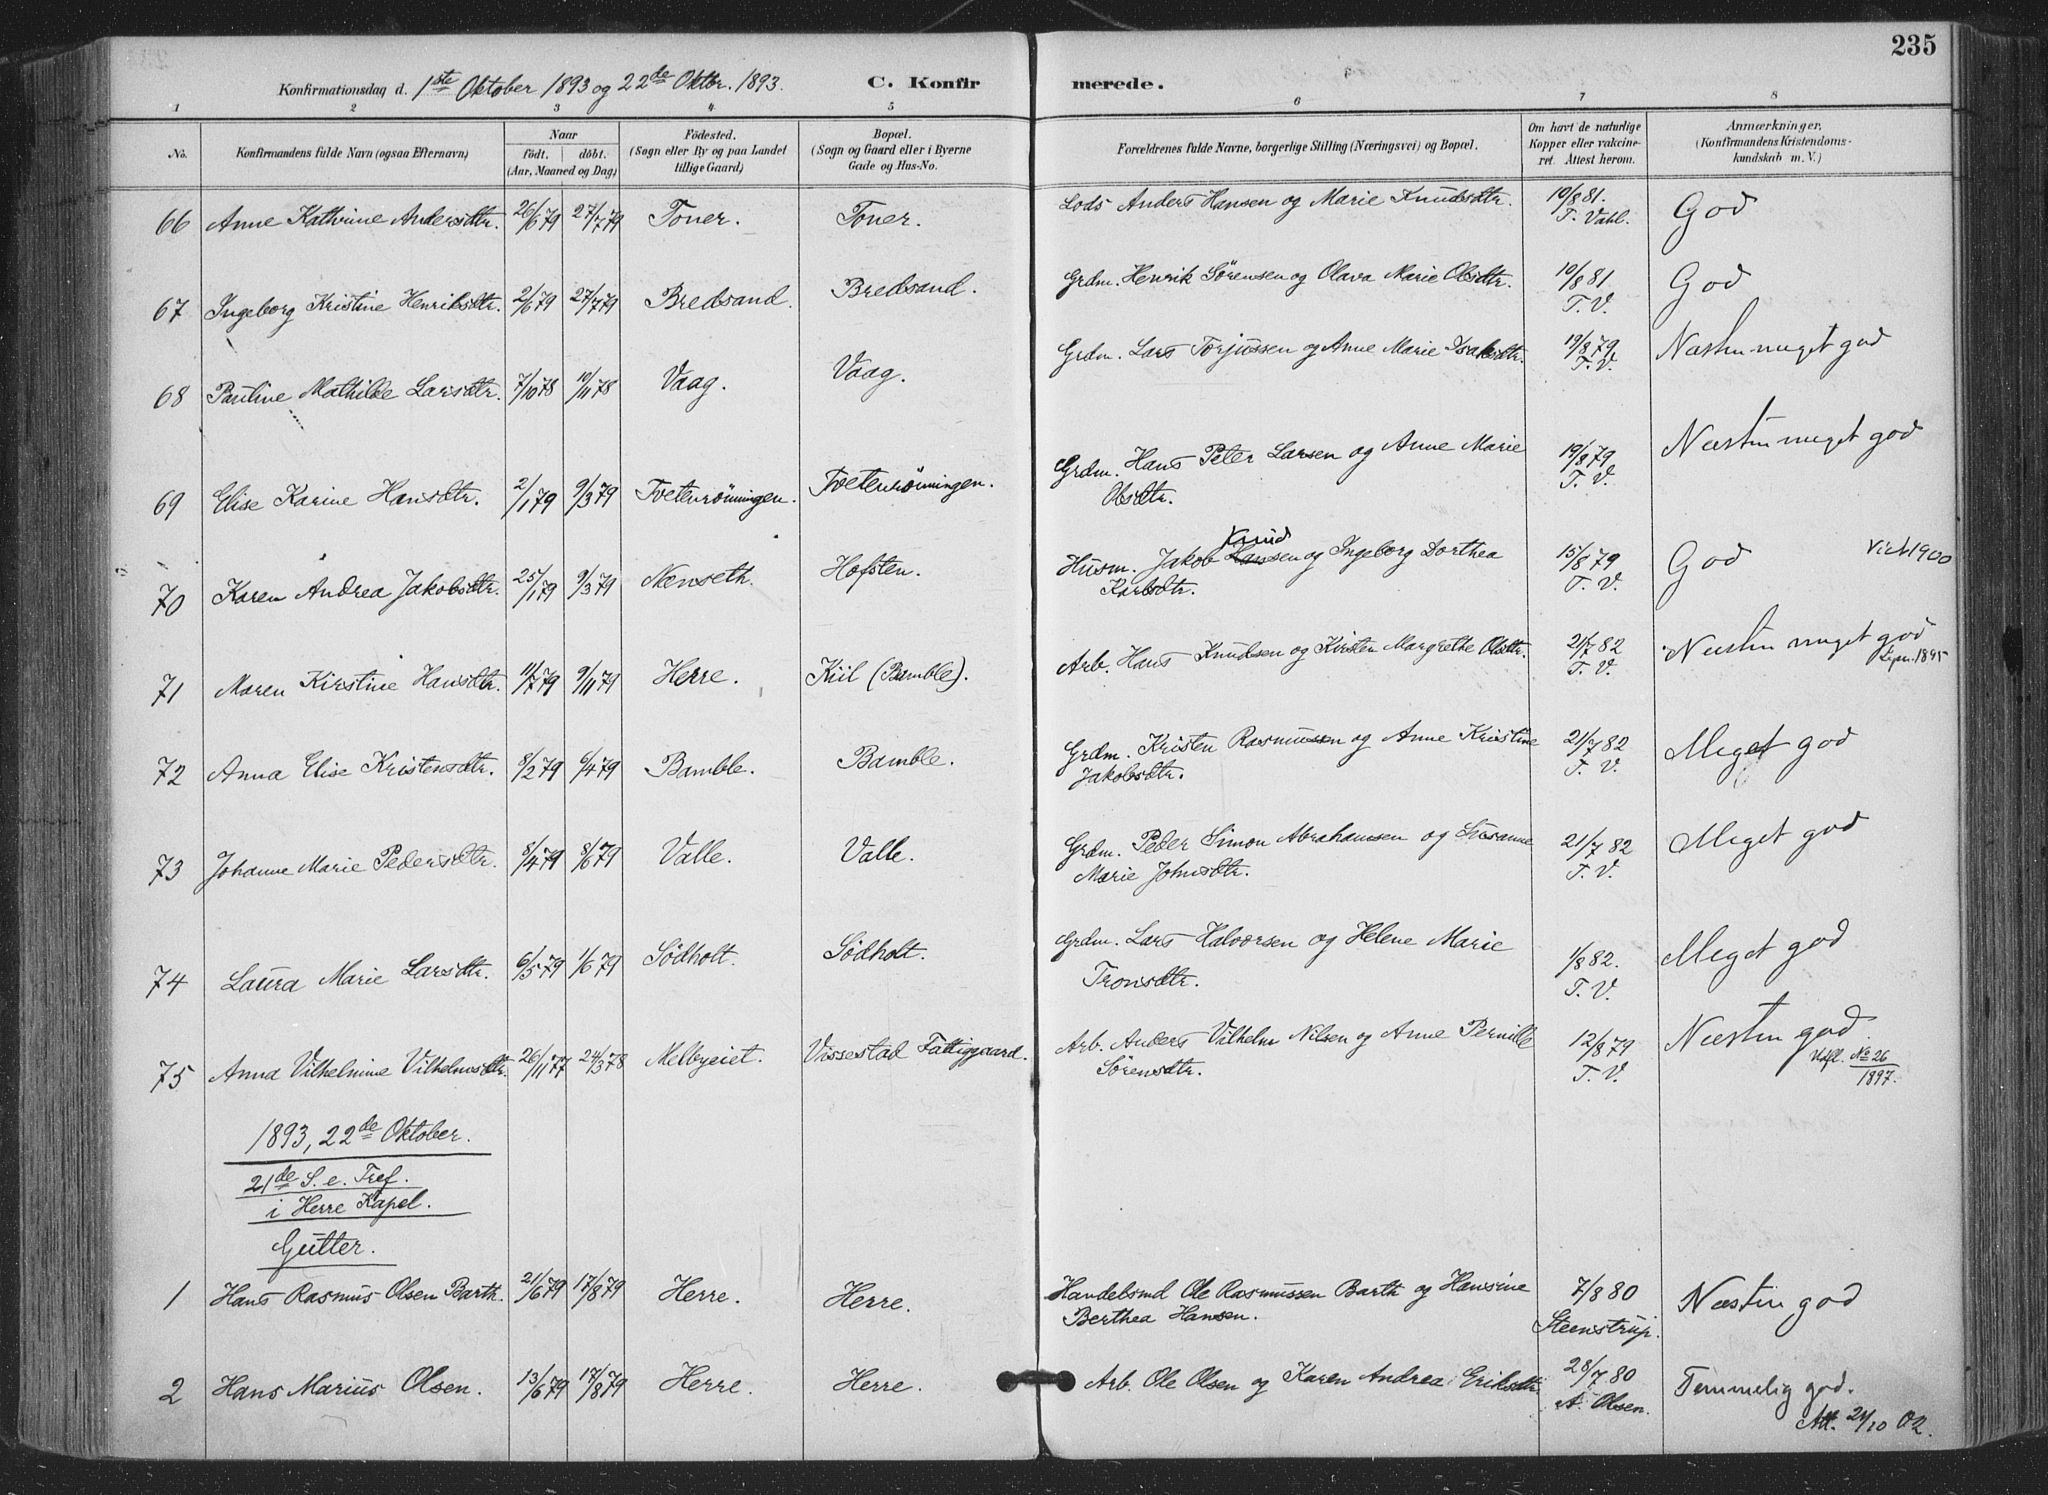 235
Konfirmationsdag d. 1ste Oktober 1893 og 22de Oktbr. 1893. C. Konfirmerede.
1 2 3 4 5 6 7 8
No. Konfirmandens fulde Navn (ogsaa Efternavn) Naar födt. döbt. (Aar, Maaned og Dag) Födested. (Sogn eller By og paa Landet tillige Gaard) Bopæl. (Sogn og Gaard eller i Byerne Gade og Hus-No. Forældrenes fulde Navne, borgerlige Stilling (Næringsvei) og Bopæl. Om havt de naturlige Kopper eller vakcineret. Attest herom. Anmærkninger. (Konfirmandens Kristendomskundskab m. V.)
66 Anne Kathrine Andersdtr. 26/6 79 27/7 79 Toner. Toner. Lods Anders Hansen og Marie Knudsdtr. 19/8 81. T. Vahl. God
67 Ingeborg Kristine Henriksdtr. 2/6 79 27/7 79 Bredsand. Bredsand. Grdm. Henrik Sørensen og Olava Marie Olsdtr. 10/8 81 T. V. God
68 Pauline Mathilde Larsdtr. 7/10 78 10/11 78 Vaag. Vaag. Grdm. Lars Torjussen og Anne Marie Isaksdtr. 19/8 79 T. V. Næsten meget god
69 Elise Karine Hansdtr. 2/1 79 9/3 79 Tvetenrönningen. Tvetenrönningen. Grdm. Hans Peter Larsen og Anne Marie
Olsdtr. 19/8 79 T. V. Næsten meget god
70 Karen Andrea Jakobsdtr. 25/1 79 9/3 79 Nenseth. Hofsten. Husm. Jakob Knudsen og Ingeborg Dorthea
Karlsdtr. 15/8 79 T. V. God 1900
71 Maren Kirstine Hansdtr. 11/7 79 9/11 79 Herre. Kiil (Bamble). Arb. Hans Knudsen og Kirsten Margrethe Olsdtr. 21/7 82 T. V. Næsten meget god
1895
72 Anna Elise Kristensdtr. 8/2 79 6/4 79 Bamble. Bamble. Grdm. Kristen Rasmussen og Anne Kristine
Jakobsdtr. 21/7 82 T. V. Meget god
73 Johanne Marie Pedersdtr. 8/4 79 8/6 79 Valle. Valle. Grdm. Peder Simon Abrahamsen og Susanne
Marie Johnsdtr. 21/7 82 T. V. Meget god
74 Laura Marie Larsdtr. 6/5 79 1/6 79 Sødholt. Sødholt. Grdm. Lars Halvorsen og Helene Marie
Tronsdtr. 1/8 82. T. V. Meget god
75 Anna Vilhelmine Vilhelmsdtr. 26/11 77 24/3 78 Melbyeiet. Vissestad Fattiggaard. Arb. Anders Vilhelm Nilsen og Anne Pernille
Sørensdtr. 12/8 79 T. V. Næsten god
Udfl. No 26/1897.
1893, 22de Oktober.
21de S. e. Tref.
i Herre Kapel.
Gutter.
1 Hans Rasmus Olsen Barth. 21/6 79 17/8 79 Herre. Herre. Handelsmd Ole Rasmussen Barth og Hansine
Berthea Hansen. 7/8 80 Steenstrup. Næsten god
2 Hans Marius Olsen. 13/6 79 17/8 79 Herre. Herre. Arb. Ole Olsen og Karen Andrea Eriksdtr 28/7 80 A. Olsen. Temmelig god.
Att. 21/10 02.